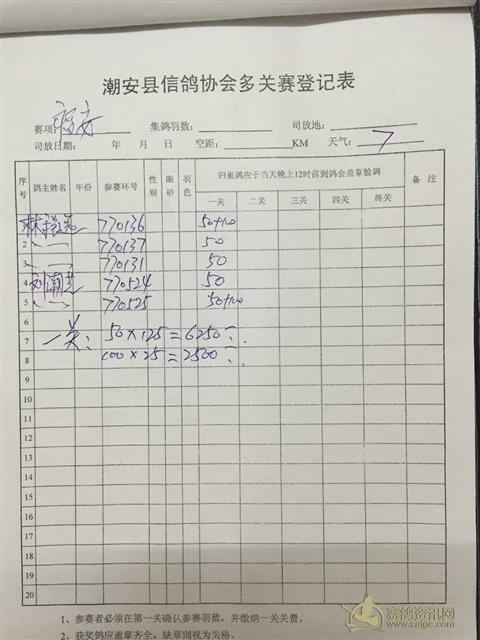 潮安县信鸽协会多关赛登记表
赛项: 福安 集鸽羽数: 司放地:
司放日期: 年 月 日 空距: KM 天气: 7
序号 鸽主姓名 年份 参赛环号 性别 眼砂 羽色 归巢鸽应于当天晚上12时前到鸽会盖章验鸽 备注
一关 二关 三关 四关 终关
770136 50+100
2 770137 50
3 770131 50
4 770524 50
5 770525 50+100
6
7 一关: 50×125=6250
8 100×25=2500
9
10
11
12
13
14
15
16
17
18
19
20
1、参赛者必须在第一关确认参赛羽数,并缴纳一关关费。
2、获奖鸽应盖章齐全,缺章则视为失格。
赛鸽资讯网
www.saige.com